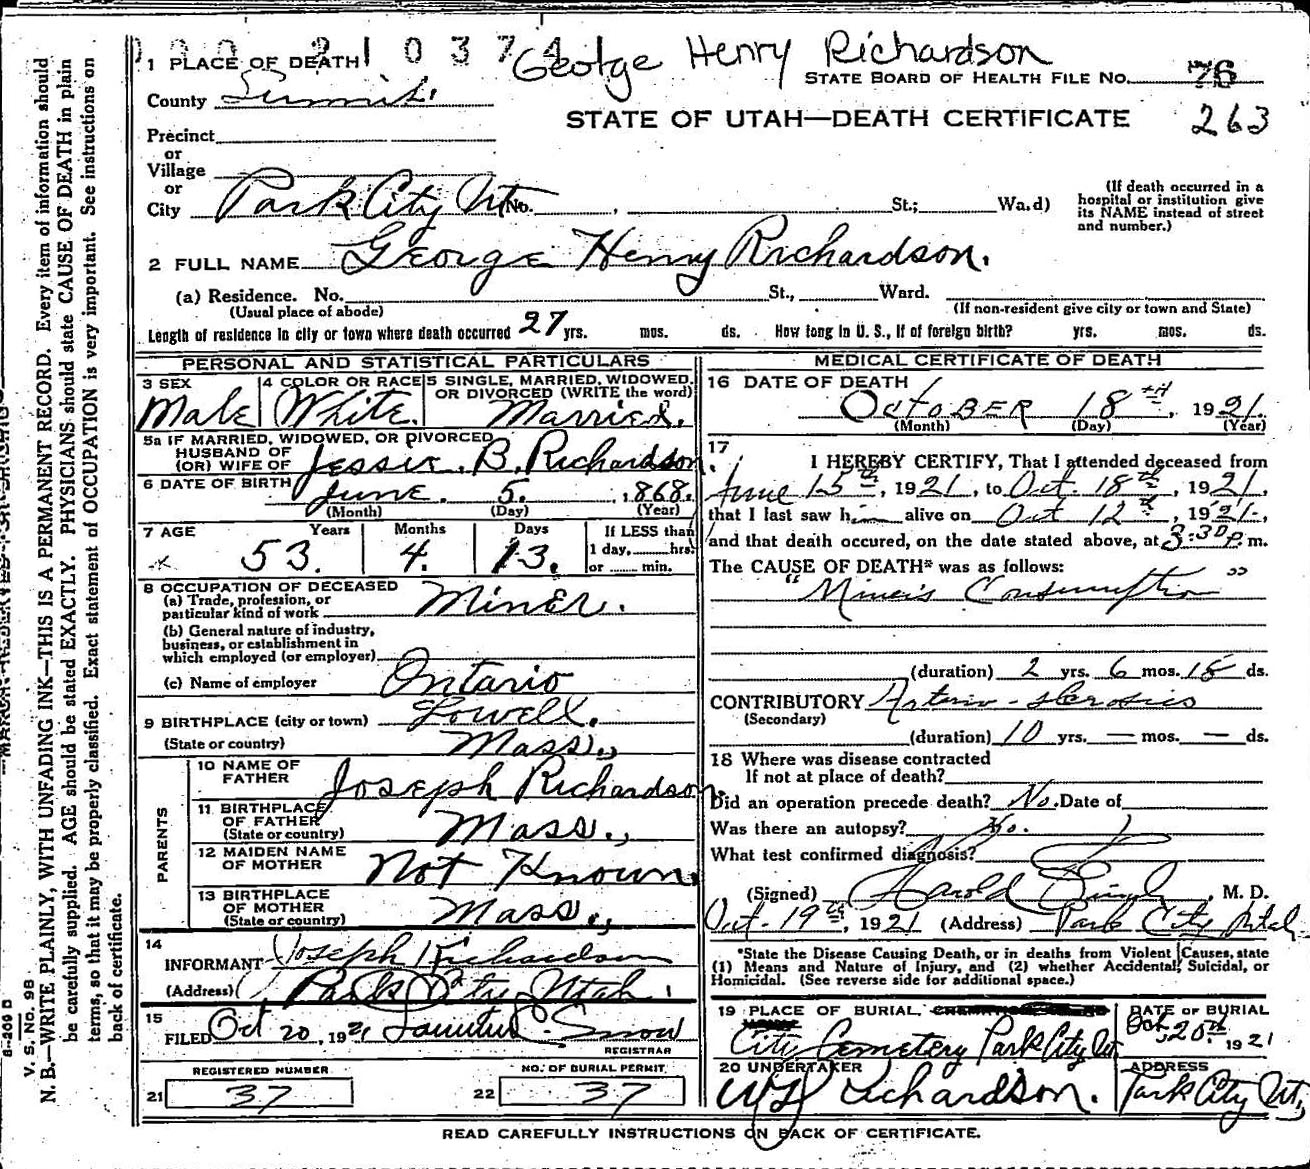 0 0 0 2 1 0 3 7 4 George Henry Richardson
1 PLACE OF DEATH
STATE BOARD OF HEALTH FILE NO. 76
County Summit
STATE OF UTAH—DEATH CERTIFICATE 263
Precinct
or
Village
or
City Park City Ut No. St.; Ward)
(If death occurred in a
hospital or institution give
its NAME instead of street
and number.)
2 FULL NAME George Henry Richardson.
(a) Residence. No. St., Ward.
(Usual place of abode) (If non-resident give city or town and State)
Length of residence in city or town where death occurred 27 yrs. mos. ds. How long in U. S., if of foreign birth? yrs. mos. ds.
PERSONAL AND STATISTICAL PARTICULARS
3 SEX 4 COLOR OR RACE 5 SINGLE, MARRIED, WIDOWED,
OR DIVORCED (WRITE the word)
Male White. Married.
5a IF MARRIED, WIDOWED, OR DIVORCED
HUSBAND OF
(OR) WIFE OF Jessie. B. Richardson.
6 DATE OF BIRTH June. 5. 1868.
(Month) (Day) (Year)
7 AGE Years Months Days If LESS than
53. 4. 13. 1 day, hrs.
or min.
8 OCCUPATION OF DECEASED
(a) Trade, profession, or
particular kind of work Miner.
(b) General nature of industry,
business, or establishment in
which employed (or employer)
(c) Name of employer Ontario
9 BIRTHPLACE (city or town) Lowell.
(State or country) Mass.,
PARENTS
10 NAME OF
FATHER Joseph Richardson.
11 BIRTHPLACE
OF FATHER
(State or country) Mass.,
12 MAIDEN NAME
OF MOTHER Not Known.
13 BIRTHPLACE
OF MOTHER
(State or country) Mass.,
14
INFORMANT Joseph Richardson
(Address) Park City Utah.
15
FILED Oct 20, 1921 Snow
REGISTRAR
REGISTERED NUMBER NO. OF BURIAL PERMIT
21 37 22 37
MEDICAL CERTIFICATE OF DEATH
16 DATE OF DEATH
October 18th, 1921.
(Month) (Day) (Year)
17
I HEREBY CERTIFY, That I attended deceased from
June 15th, 1921, to Oct. 18th, 1921,
that I last saw him alive on Oct 12th, 1921.,
and that death occured, on the date stated above, at 3:30 P. m.
The CAUSE OF DEATH* was as follows:
"Miner's Consumption"
(duration) 2 yrs. 6 mos. 18 ds.
CONTRIBUTORY Arterio-sclerosis
(Secondary)
(duration) 10 yrs. — mos. — ds.
18 Where was disease contracted
If not at place of death?
Did an operation precede death? No. Date of
Was there an autopsy? No.
What test confirmed diagnosis?
(Signed) Harold, M. D.
Oct. 19th, 1921 (Address) Park City Utah
*State the Disease Causing Death, or in deaths from Violent Causes, state
(1) Means and Nature of Injury, and (2) whether Accidental, Suicidal, or
Homicidal. (See reverse side for additional space.)
19 PLACE OF BURIAL, DATE OF BURIAL
City Cemetery Park City Ut. Oct, 20th 1921
20 UNDERTAKER ADDRESS
Richardson. Park City Ut,
READ CAREFULLY INSTRUCTIONS ON BACK OF CERTIFICATE.
N. B.—WRITE PLAINLY, WITH UNFADING INK—THIS IS A PERMANENT RECORD. Every item of information should
be carefully supplied. AGE should be stated EXACTLY. PHYSICIANS should state CAUSE OF DEATH in plain
terms, so that it may be properly classified. Exact statement of OCCUPATION is very important. See instructions on
back of certificate.
V. S. NO. 98